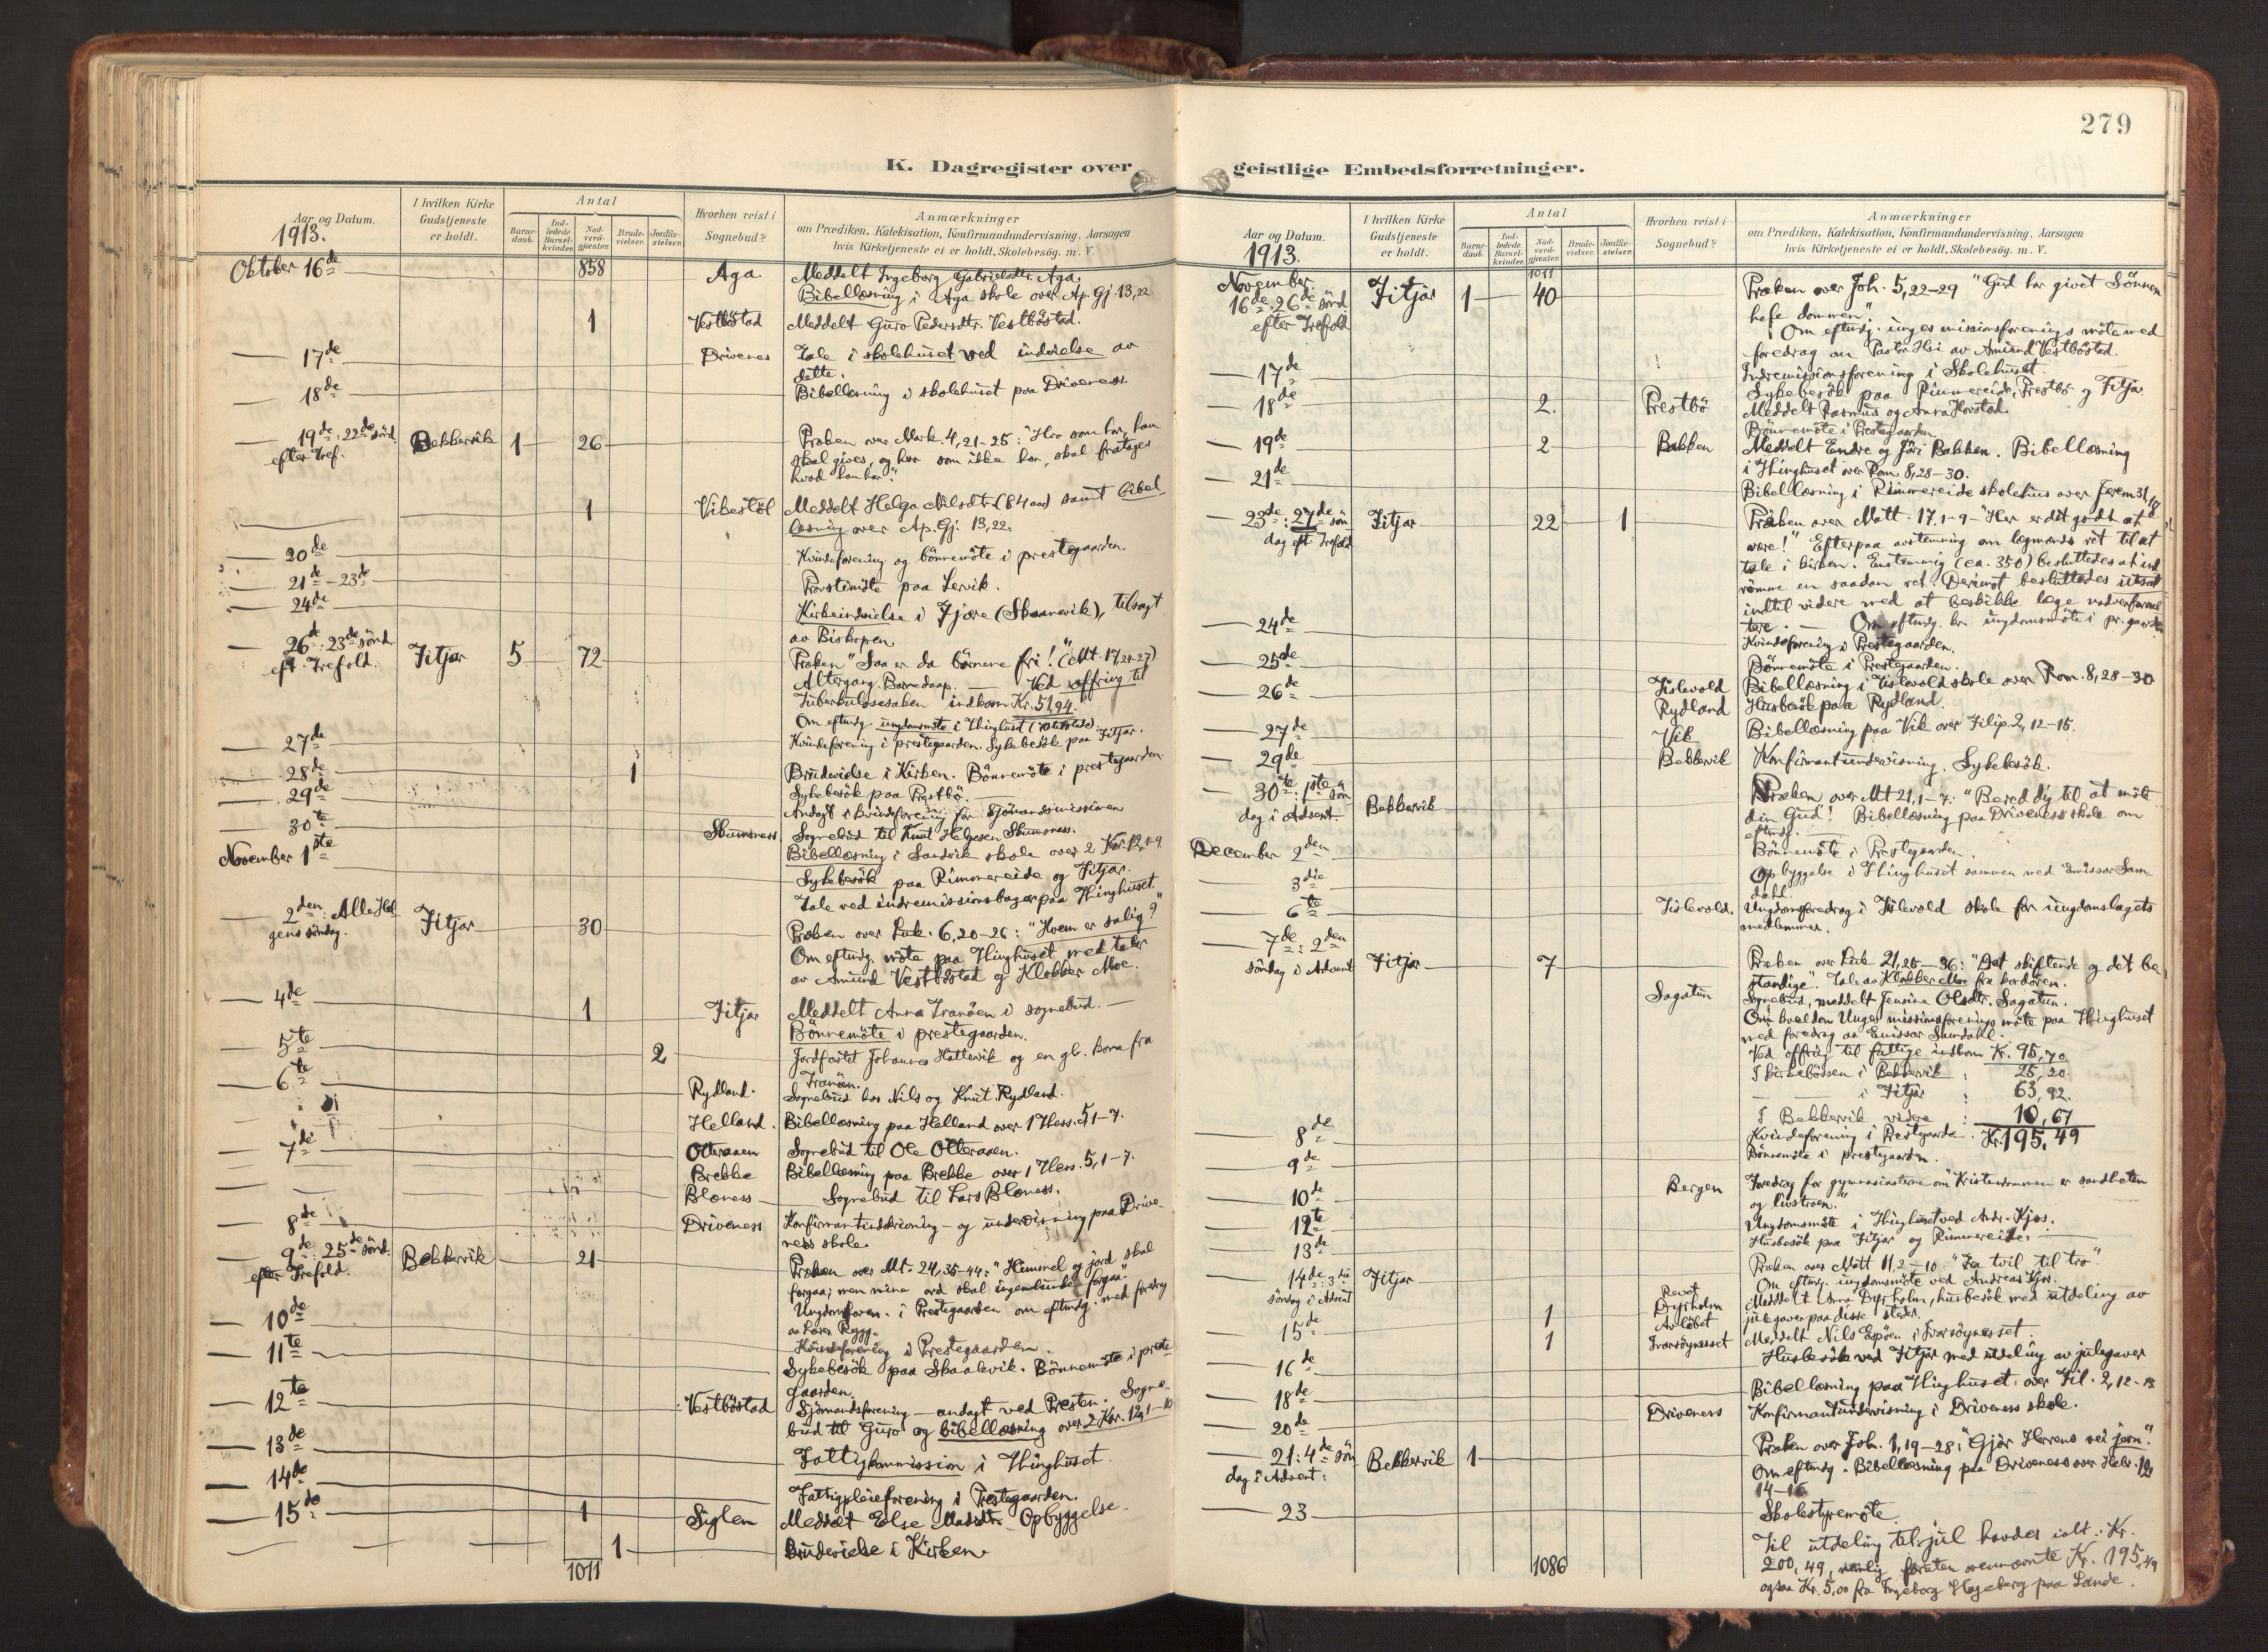 279
K. Dagregister over
Aar og Datum.
1913.
I hvilken Kirke
Gudstjeneste
er holdt.
Antal
Barne-
daab.
Ind-
ledede
Barsel-
kvinder.
Nad-
verd-
gjæster.
Brude-
vielser.
Jordfæ-
stelser.
Hvorhen reist i
Sognebud?
Anmærkninger
om Prædiken, Katekisation, Konfirmandundervisning, Aarsagen
hvis Kirketjeneste ei er holdt, Skolebesög. m. V.
Oktober 16de 858 Aga Meddelt Ingeborg Gabrielsdtr. Aga.
Bibellæsning i Aga skole over Ap. Gj. 13,22
1 Vestböstad Meddelt Guro Pedersdtr. Vestböstad.
17de Drivenes Tale i skolehuset ved indvielse av
dette.
18de Bibellæsning i skolehuset paa Driveness.
19de: 22de sönd. Bekkervik 1 26 Præken over Mark. 4,21-25: "Hvo som har, ham
efter Tref. skal gives, og hvo som ikke har, skal fratages
hvad han har."
1 Vikestöl Meddelt Helga Nilsdtr. (84 aar) samt bibel
læsning over Ap. Gj. 13,22.
20de Kvindeforening og bönnemöte i prestegaarden.
21de - 23de Provstimöte paa Lervik.
24de Kirkeindvielse i Fjære (Skaanevik), tilsagt
av Biskopen
26de: 23de sönd. Fitjar 5 72 Præken "Saa er da börnene fri!" (Mt. 17,24-27)
eft. Trefold. Altergang. Barnedaap. — Ved offring til
Tuberkulosesaken indkom Kr. 51,94.
Om eftmdg. ungdomsmöte i Thinghuset
27de Kvindeforening i prestegaarden. Sykebesök paa Fitjar.
28de 1 Brudevielse i Kirken. Bönnemöte i prestegaarden
29de Sykebesök paa Prestbö.
Andagt i kvindeforening for Sjömandsmissionen
30te Skumsness Sognebud til Knut Helgesen Skumsness.
November 1ste Bibellæsning i Sandvik skole over 2 Kor. 12,1-9
Sykebesök paa Rimmereide og Fitjar.
Tale ved indremissionsbasar paa Thinghuset.
2den: Allehel Fitjar 30 Præken over Luk. 6,20-26: "Hvem er salig?"
gens söndag. Om eftmdg. möte paa Thinghuset med taler
av Amund Vestböstad og Klokker Moe.
4de 1 Fitjar Meddelt Anna Tranöen i sognebud. —
Bönnemöte i prestegaarden.
5te 2 Jordfæstet Johannes Hattevik og en gl. kone fra
Tranöen.
6te Rydland. Sognebud hos Nils og Knut Rydland.
Helland. Bibellæsning paa Helland over 1 Thess. 5,1-7.
7de Otteraaen Sognebud til Ole Otteraaen.
Brekke Bibellæsning paa Brekke over 1 Thess. 5,1-7.
Bloness Sognebud til Lars Bloness.
8de Driveness Konfirmantindskrivning - og undervisning paa Drive-
ness skole.
9de: 25de sönd. Bekkervik 21 Præken over Mt. 24,35-44: "Himmel og jord skal
efter Trefold. forgaa; men mine ord skal ingenlunde forgaa."
10de Ungdomsforen. i Prestegaarden om eftmdg. med foredrag
av Lærer Rygg.
11te Kvindeforening i Prestegaarden.
Sykebesök paa Skaalevik. Bönnemöte i preste
gaarden.
12te Vestböstad Sjömandsforening - andagt ved Presten. Sogne-
bud til Guro og bibellæsning over 2 Kor. 12,1-10
13de Fattigkommission i Thinghuset.
14de Fattigpleieforening i Prestegaarden.
15de 1 Sylen Meddelt Else Madsdtr. Opbyggelse.
1 Brudevielse i Kirken.
1011
geistlige Embedsforretninger.
Aar og Datum.
1913.
I hvilken Kirke
Gudstjeneste
er holdt.
Antal
Barne-
daab.
Ind-
ledede
Barsel-
kvinder.
Nad-
verd-
gjæster.
Brude-
vielser.
Jordfæ-
stelser.
Hvorhen reist i
Sognebud?
Anmærkninger
om Prædiken, Katekisation, Konfirmandundervisning, Aarsagen
hvis Kirketjeneste ei er holdt, Skolebesög. m. V.
November. 1011
16de: 26de sönd. Fitjar 1 40 Præken over Joh. 5,22-29 "Gud har givet Sönnen
efter Trefold hele dommen".
Om eftmdg. unges missionsforenings möte med
foredrag om Pastor Hsi av Amund Vestböstad.
17de Indremissionsforening i Skolehuset.
18de 2. Prestbö Sykebesök paa Rimmereide, Prestbö og Fitjar
Meddelt Rasmus og Anna Hovstad.
Bönnemöte i Prestegaarden
19de 2 Bakken Meddelt Endre og Jöri Bakken. Bibellæsning
i Thinghuset over Rom. 8,28-30.
21de Bibellæsning i Rimmereide skolehus over Jerem 31,18
23de: 27de sön Fitjar 22 1 Præken over Matt. 17,1-9 - "Her er det godt at
dag eft. Trefold være!" Efterpaa avstemning om lægmænds ret til at
tale i kirken. Enstemmig (ca. 350) besluttedes at ind
römme en saadan ret. Derimot besluttedes utsat
indtil videre med at beskikke læge nadverforval
tere. — Om eftmdg. kr. ungdomsmöte i pr. gaarden
24de Kvindeforening i Prestegaarden.
25de Bönnemöte i Prestegaarden.
26de Tislevold Bibellæsning i Tislevold skole over Rom. 8,28-30
Rydland Husbesök paa Rydland.
27de Vik Bibellæsning paa Vik over Filip. 2,12-15.
29de Bekkervik Konfirmantundervisning. Sykebesök.
30te: 1ste sön Bekkervik Præken over Mt 21,1-7: "Bered dig til at möte
dag i Advent. din Gud"! Bibellæsning paa Driveness skole om
eftmdg.
December 2den Bönnemöte i Prestegaarden.
3die Opbyggelse i Thinghuset sammen med Emissær Sam-
dahl.
6te Tislevold. Ungdomsforedrag i Tislevold skole for ungdomslagets
medlemmer.
7de: 2den Fitjar 7 Præken over Luk 21,25-36: "Det skiftende og det be-
söndag i Advent standige". Tale av Klokker Moe fra kordören.
Sagatun Sognebud, meddelt Jensine Olsdtr. Sagatun.
Om kvelden Unges missionsforenings möte paa Thinghuset
med foredrag av Emissær Samdahl.
Ved offring til fattige indkom Kr. 95,70
I kirkebössen i Bekkervik : 25,20
— i Fitjar : 63,92.
I Bekkervik videre : 10,67
8de Kvindeforening i Prestegaarden. Kr. 195,49
9de Bönnemöte i prestegaarden.
10de Bergen Foredrag for gymnasiasterne om "Kristendommen er sandheten
og livstroen."
12te Ungdomsmöte i Thinghuset ved Andr. Kjos.
13de Husbesök paa Fitjar og Rimmereide.
14de: 3die Fitjar Præken over Matt 11,2-10 "Fra tvil til tro".
söndag i Advent Om eftmdg. ungdomsmöte ved Andreas Kjos.
15de 1 Dyrholm Meddelt Anna Dyrholm, husbesök med utdeling av
Avlöbet julegaver paa disse steder.
1 Ivarsöynesset Meddelt Nils Espöen i Ivarsöynesset.
16de Husbesök ved Fitjar med utdeling av julegaver
18de Bibellæsning paa Thinghuset over Fil. 2,12-15
20de Driveness Konfirmantundervisning i Driveness skole.
21: 4de sön Bekkervik 1 Præken over Joh. 1,19-28: "Gjör Herrens vei jævn".
dag i Advent: Om eftmdg. Bibellæsning paa Driveness over Hebr. 12,
14-16
23 Skolestyremöte
Til utdeling til jul havdes ialt: Kr.
1086 200,49, nemlig foruten ovennævnte Kr. 195,49
ogsaa Kr. 5,00 fra Ingeborg Hageberg paa Lande.